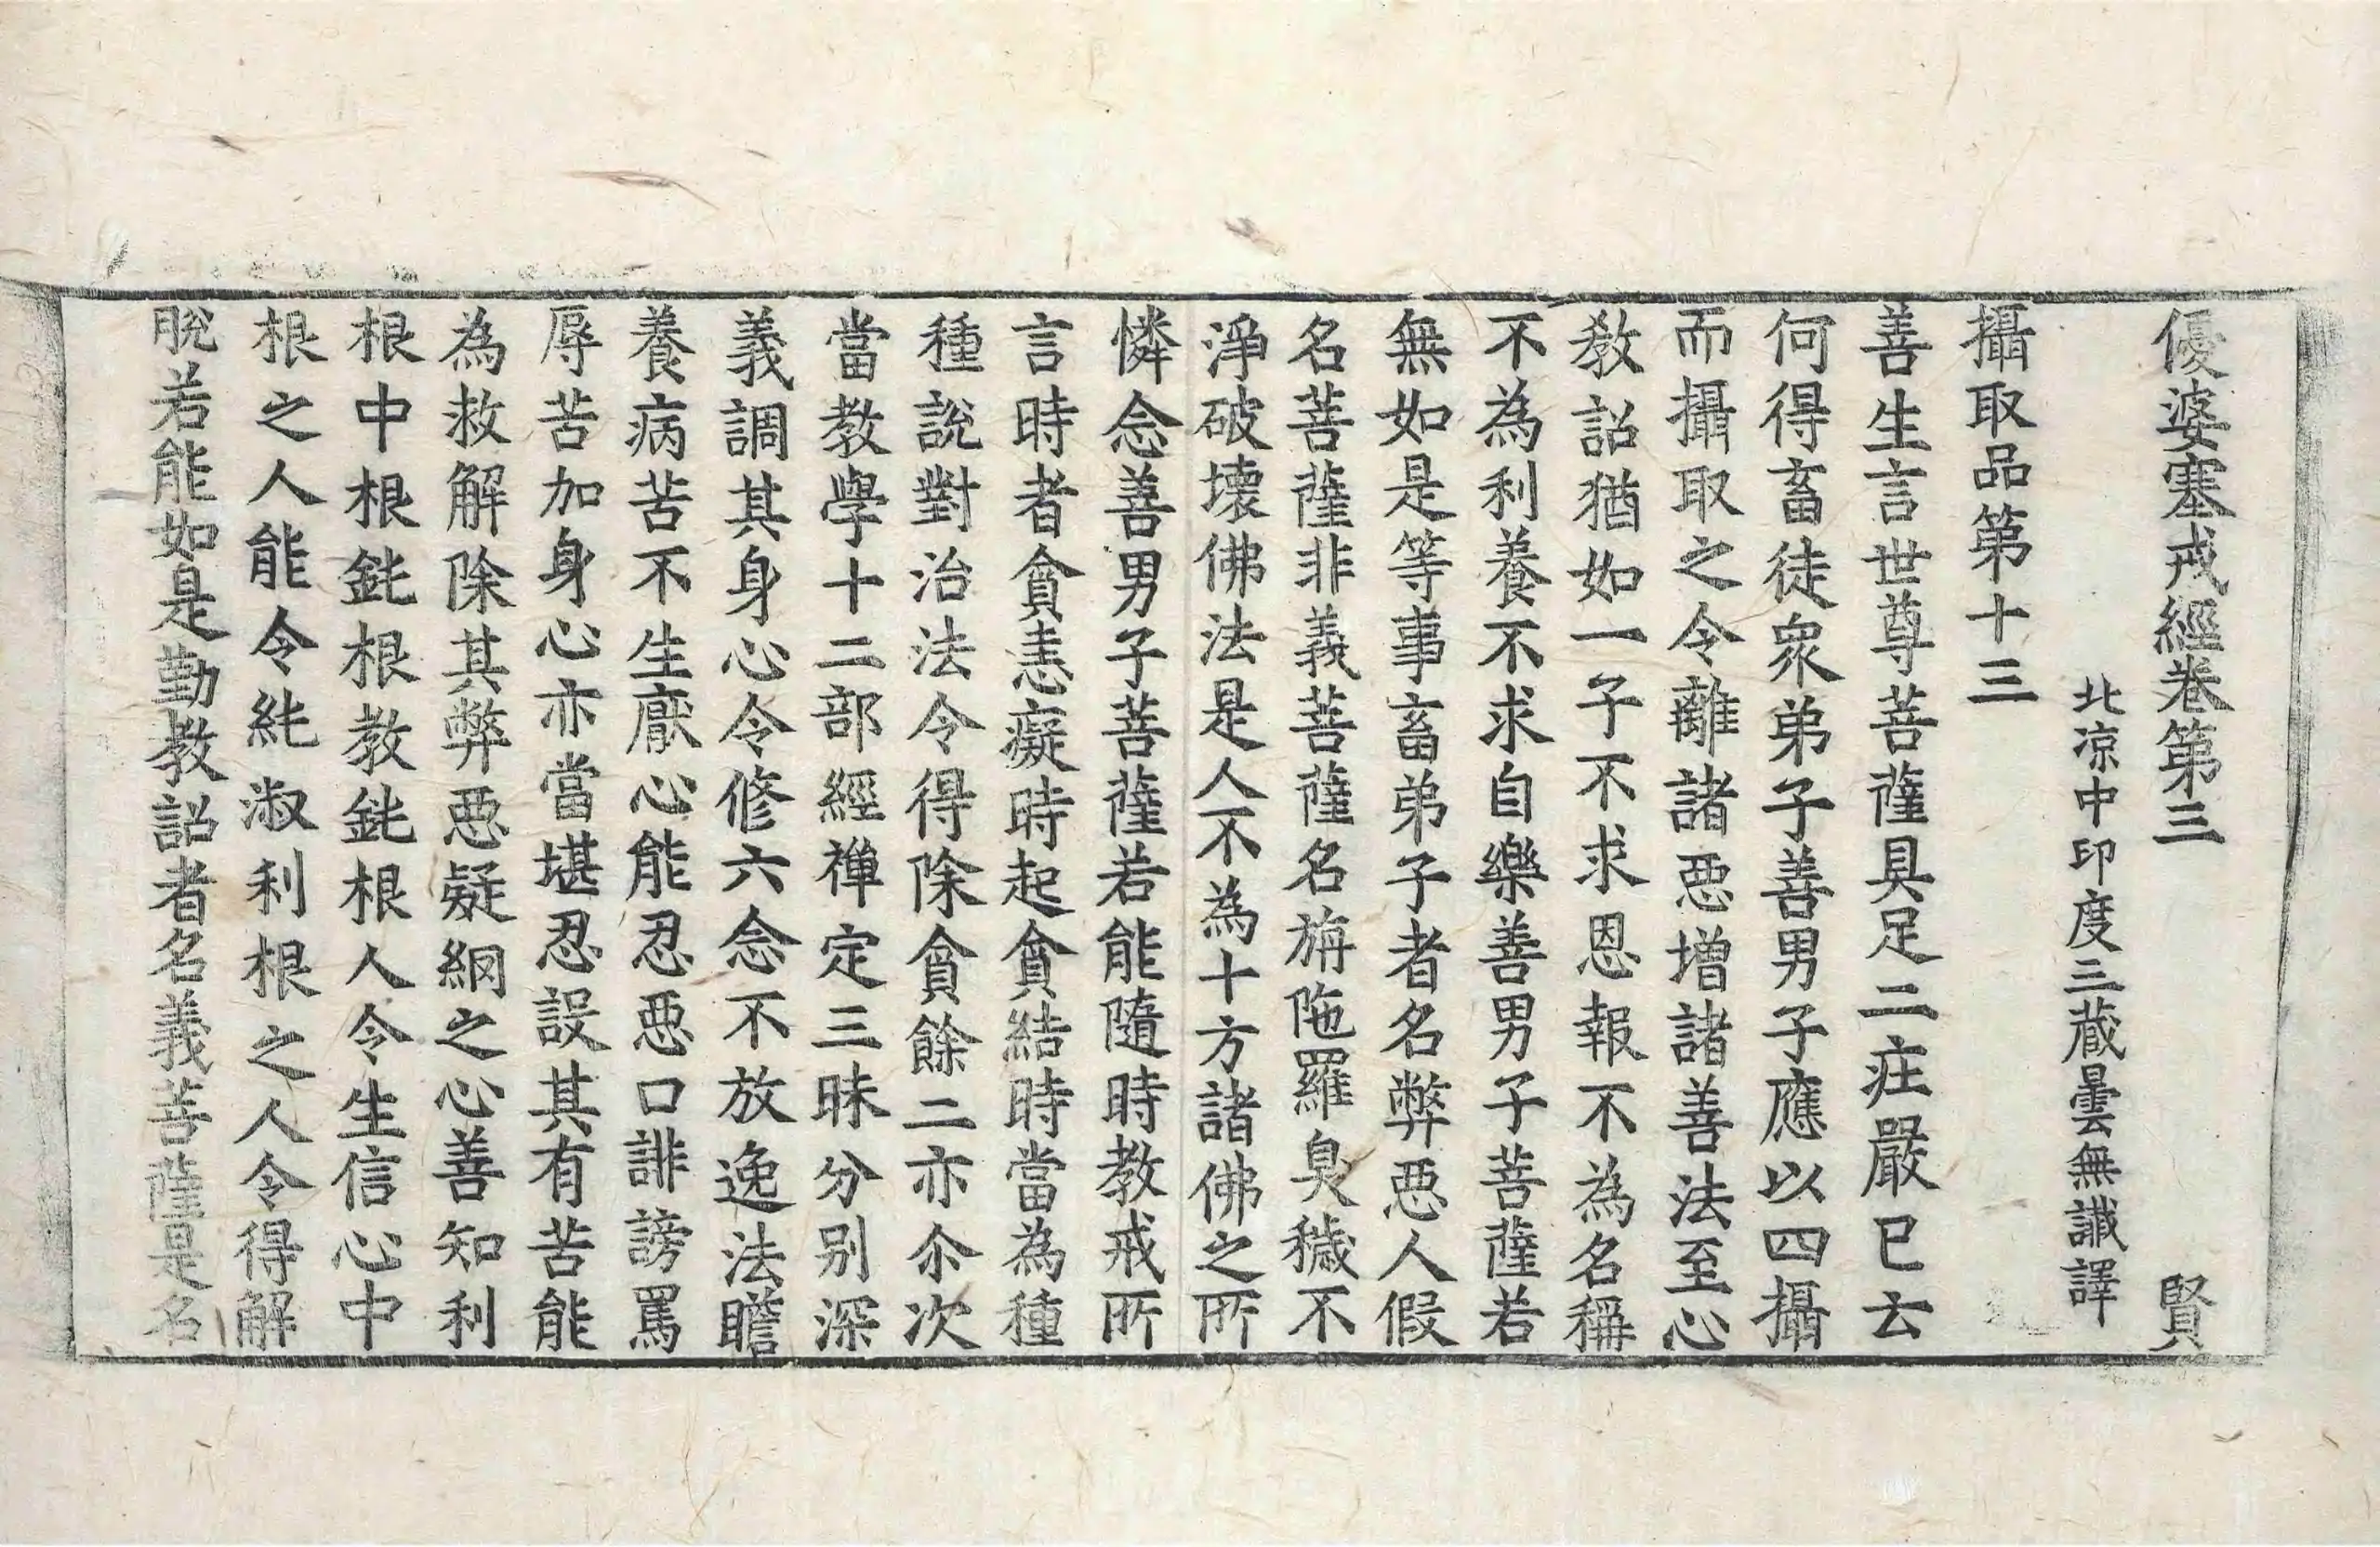 優婆塞戒經卷第三　賢
北涼中印度三藏曇無讖譯
攝取品第十三
善生言世尊菩薩具足二庄嚴已云
何得畜徒衆弟子善男子應以四攝
而攝取之令離諸惡增諸善法至心
教詔猶如一子不求恩報不為名稱
不為利養不求自樂善男子菩薩若
無如是等事畜弟子者名弊惡人假
名菩薩非義菩薩名旃陁羅臭穢不
淨破壞佛法是人不為十方諸佛之所
憐念善男子菩薩若能隨時教戒所
言時者貪恚癡時起貪結時當為種
種說對治法令得除貪餘二亦尒次
當教學十二部經禪定三昧分別深
義調其身心令修六念不放逸法瞻
養病苦不生厭心能忍惡口誹謗罵
辱苦加身心亦當堪忍設其有苦能
為救解除其弊惡疑網之心善知利
根中根鈍根教鈍根人令生信心中
根之人能令純淑利根之人令得解
脫若能如是勤教詔者名義菩薩是名